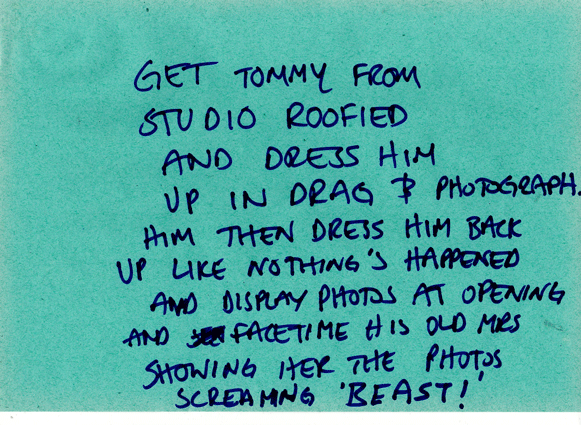 GET TOMMY FROM
STUDIO ROOFIED
AND DRESS HIM
UP IN DRAG & PHOTOGRAPH.
HIM THEN DRESS HIM BACK
UP LIKE NOTHING'S HAPPENED
AND DISPLAY PHOTOS AT OPENING
AND FACETIME HIS OLD MRS
SHOWING HER THE PHOTOS
SCREAMNG 'BEAST!'